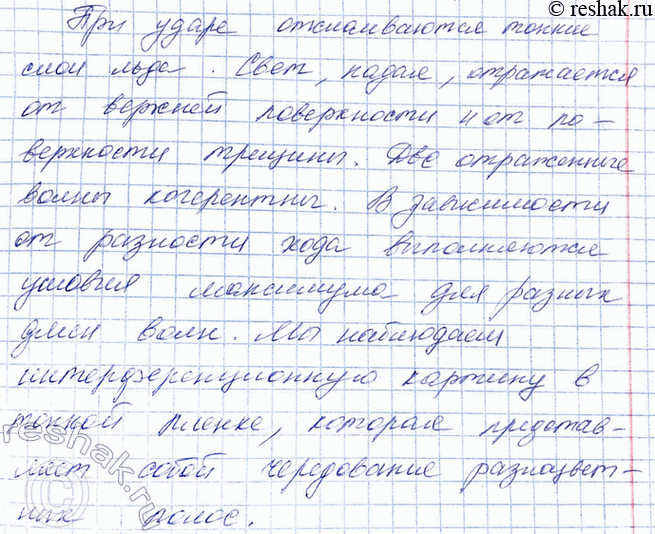 © reshak.ru
При ударе отслаиваются тонкие
слои льда. Свет, падая, отражается
от верхней поверхности и от по-
верхности трещины. Две отраженные
волны когерентны. В зависимости
от разности хода выполняются
условия максимума для разных
длин волн. Мы наблюдаем
интерференционную картину в
тонкой пленке, которая представ-
ляет собой чередование разноцвет-
ных полос.
reshak.ru
©